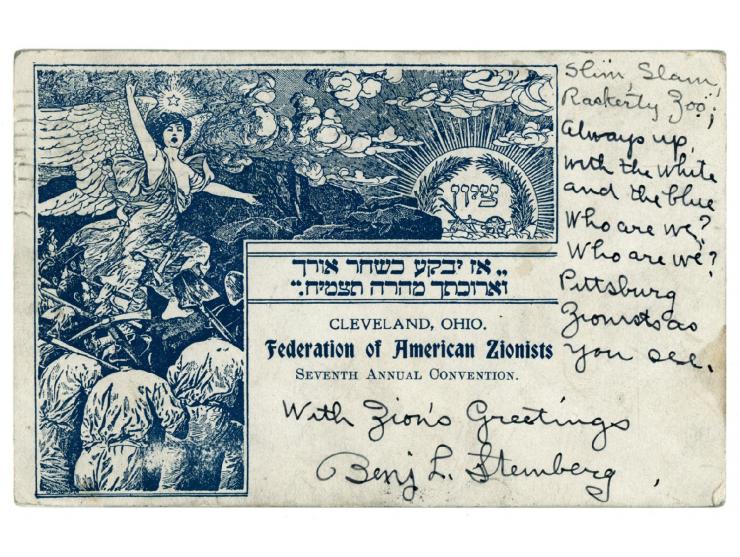 ציון
„אז יבקע כשחר אורך
וארוכתך מהרה תצמיח."
CLEVELAND, OHIO.
Federation of American Zionists
SEVENTH ANNUAL CONVENTION.
With Zion's Greetings
Benj L. Sternberg,
Slim, Slam,
Raskerty Zoo;
Always up,
with the white
and the blue
Who are we?
Who are we?
Pittsburg
Zionists as
you see.